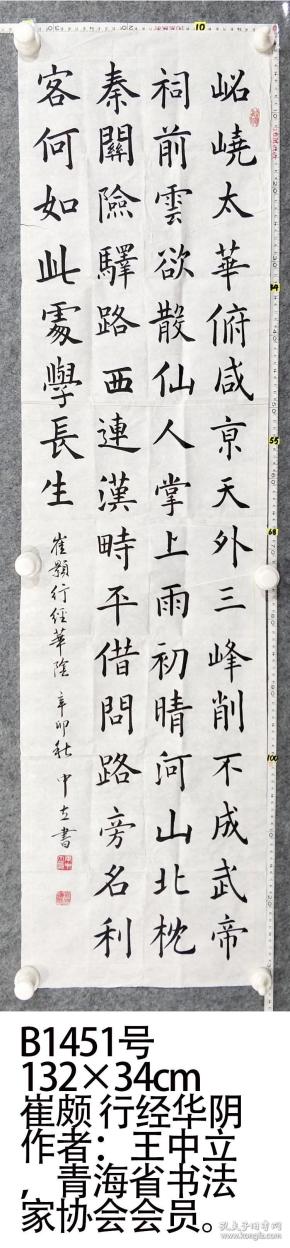 岧嶢太華俯咸京天外三峰削不成武帝
祠前雲欲散仙人掌上雨初晴河山北枕
秦關險驛路西連漢畤平借問路旁名利
客何如此處學長生
崔顥行經華陰 辛卯秋 中立書
B1451号
132×34cm
崔颇 行经华阴
作者：王中立
，青海省书法
家协会会员。
孔夫子旧书网